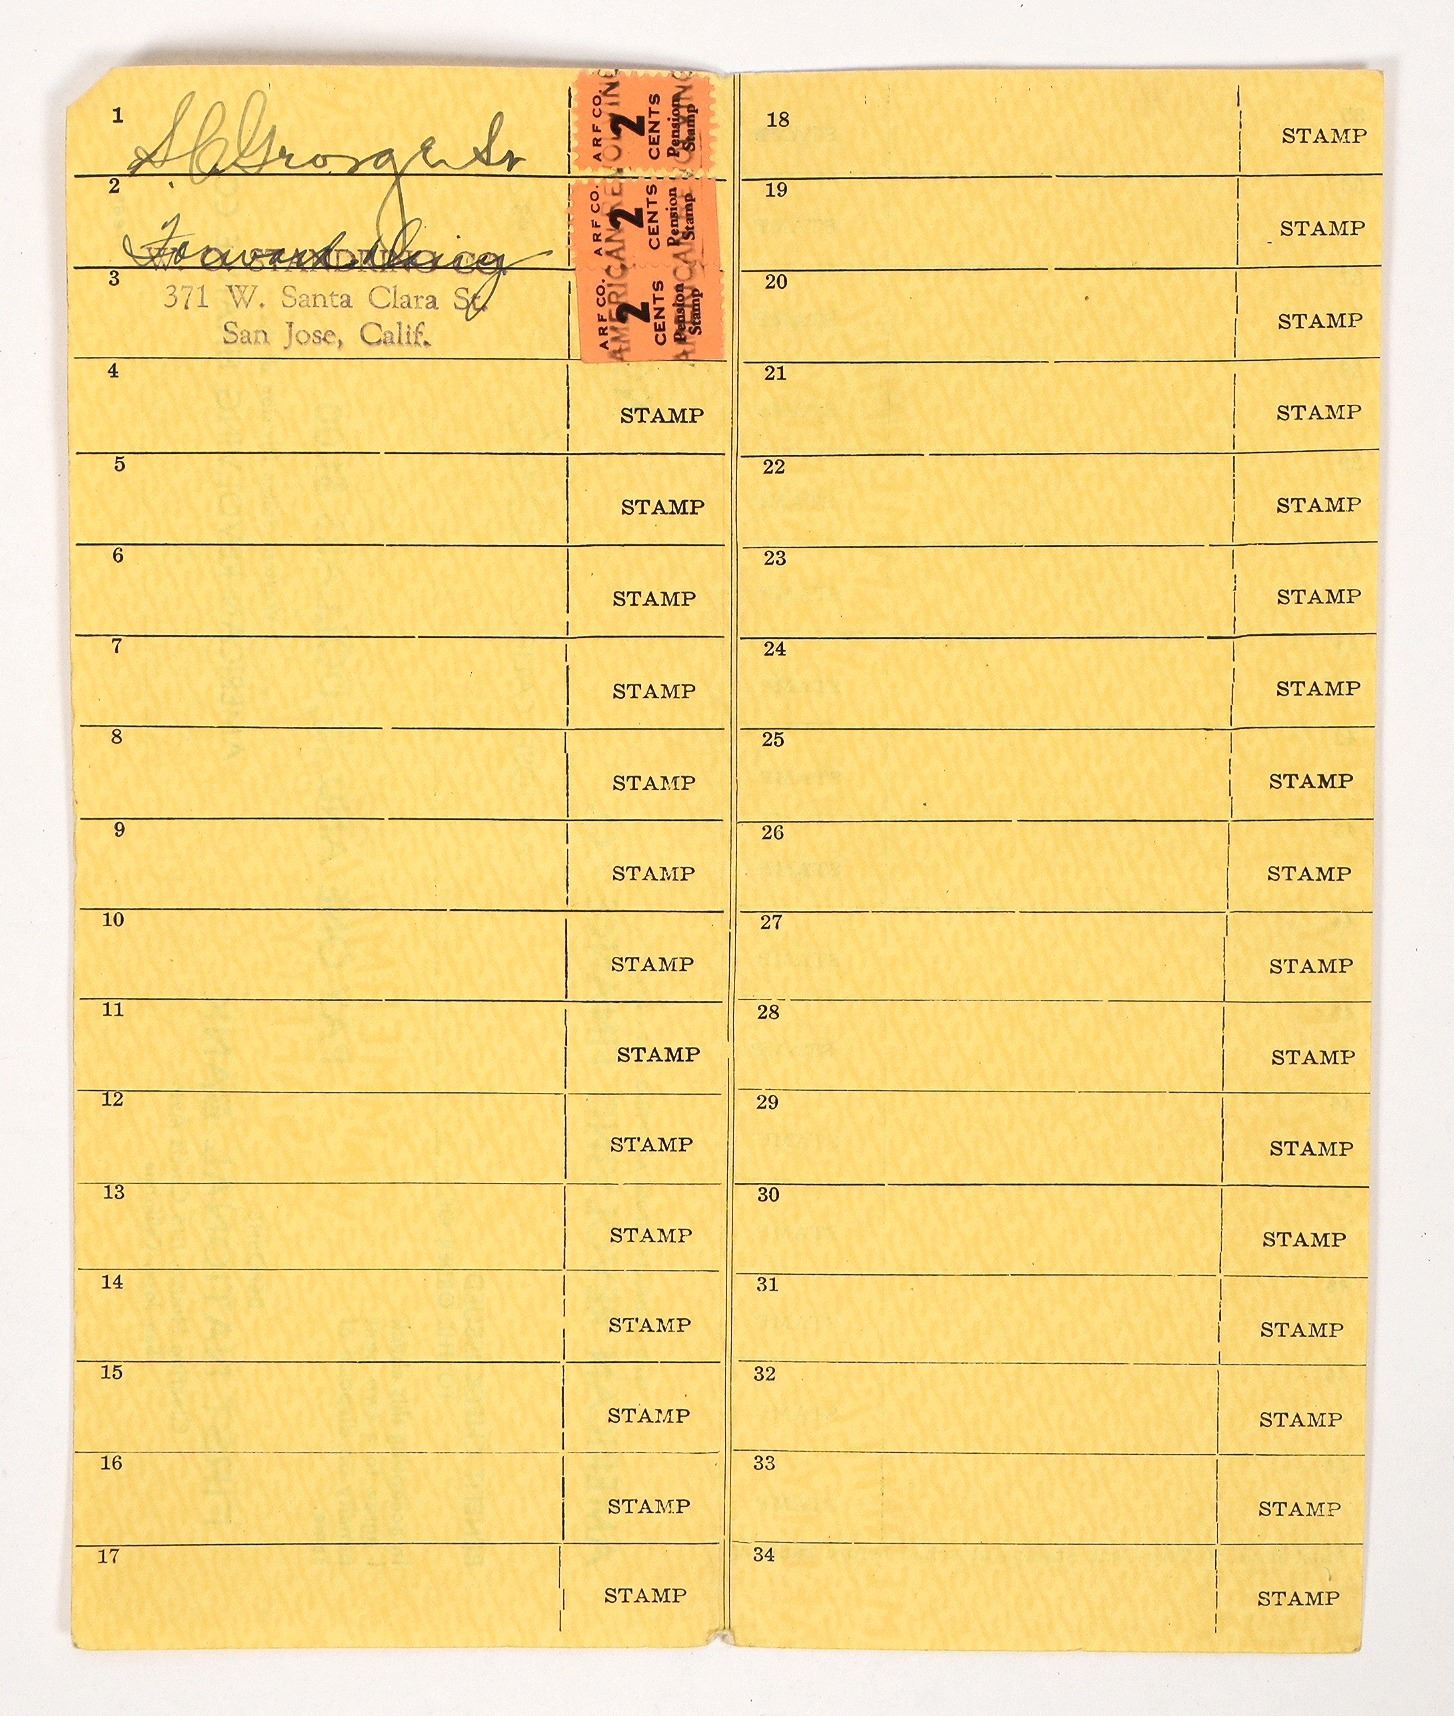 1
2
3
371 W. Santa Clara St.
San Jose, Calif.
ARF CO. 2 CENTS Pension Stamp
ARF CO. 2 CENTS Pension Stamp
ARF CO. 2 CENTS Pension Stamp
AMERICAN REVOLVING
AMERICAN REVOLVING
4 STAMP
5 STAMP
6 STAMP
7 STAMP
8 STAMP
9 STAMP
10 STAMP
11 STAMP
12 STAMP
13 STAMP
14 STAMP
15 STAMP
16 STAMP
17 STAMP
18 STAMP
19 STAMP
20 STAMP
21 STAMP
22 STAMP
23 STAMP
24 STAMP
25 STAMP
26 STAMP
27 STAMP
28 STAMP
29 STAMP
30 STAMP
31 STAMP
32 STAMP
33 STAMP
34 STAMP